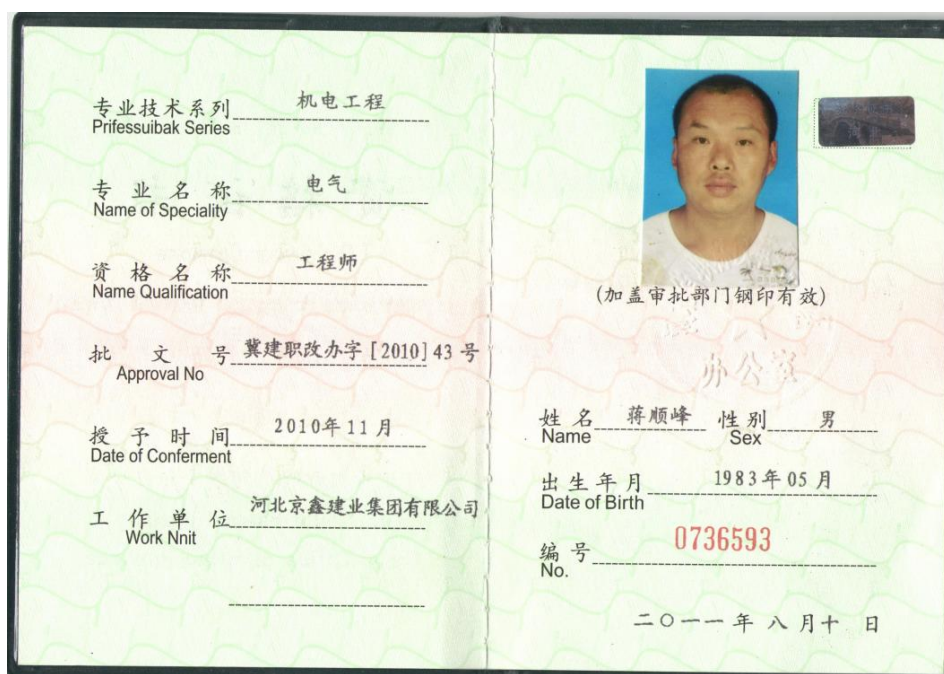 专业技术系列 机电工程
Prifessuibak Series
专业名称 电气
Name of Speciality
资格名称 工程师
Name Qualification
批文号 冀建职改办字[2010]43号
Approval No
授予时间 2010年11月
Date of Conferment
工作单位 河北京鑫建业集团有限公司
Work Nnit
(加盖审批部门钢印有效)
办公室
姓名 蒋顺峰 性别 男
Name Sex
出生年月 1983年05月
Date of Birth
编号 0736593
No.
二〇一一年八月十日